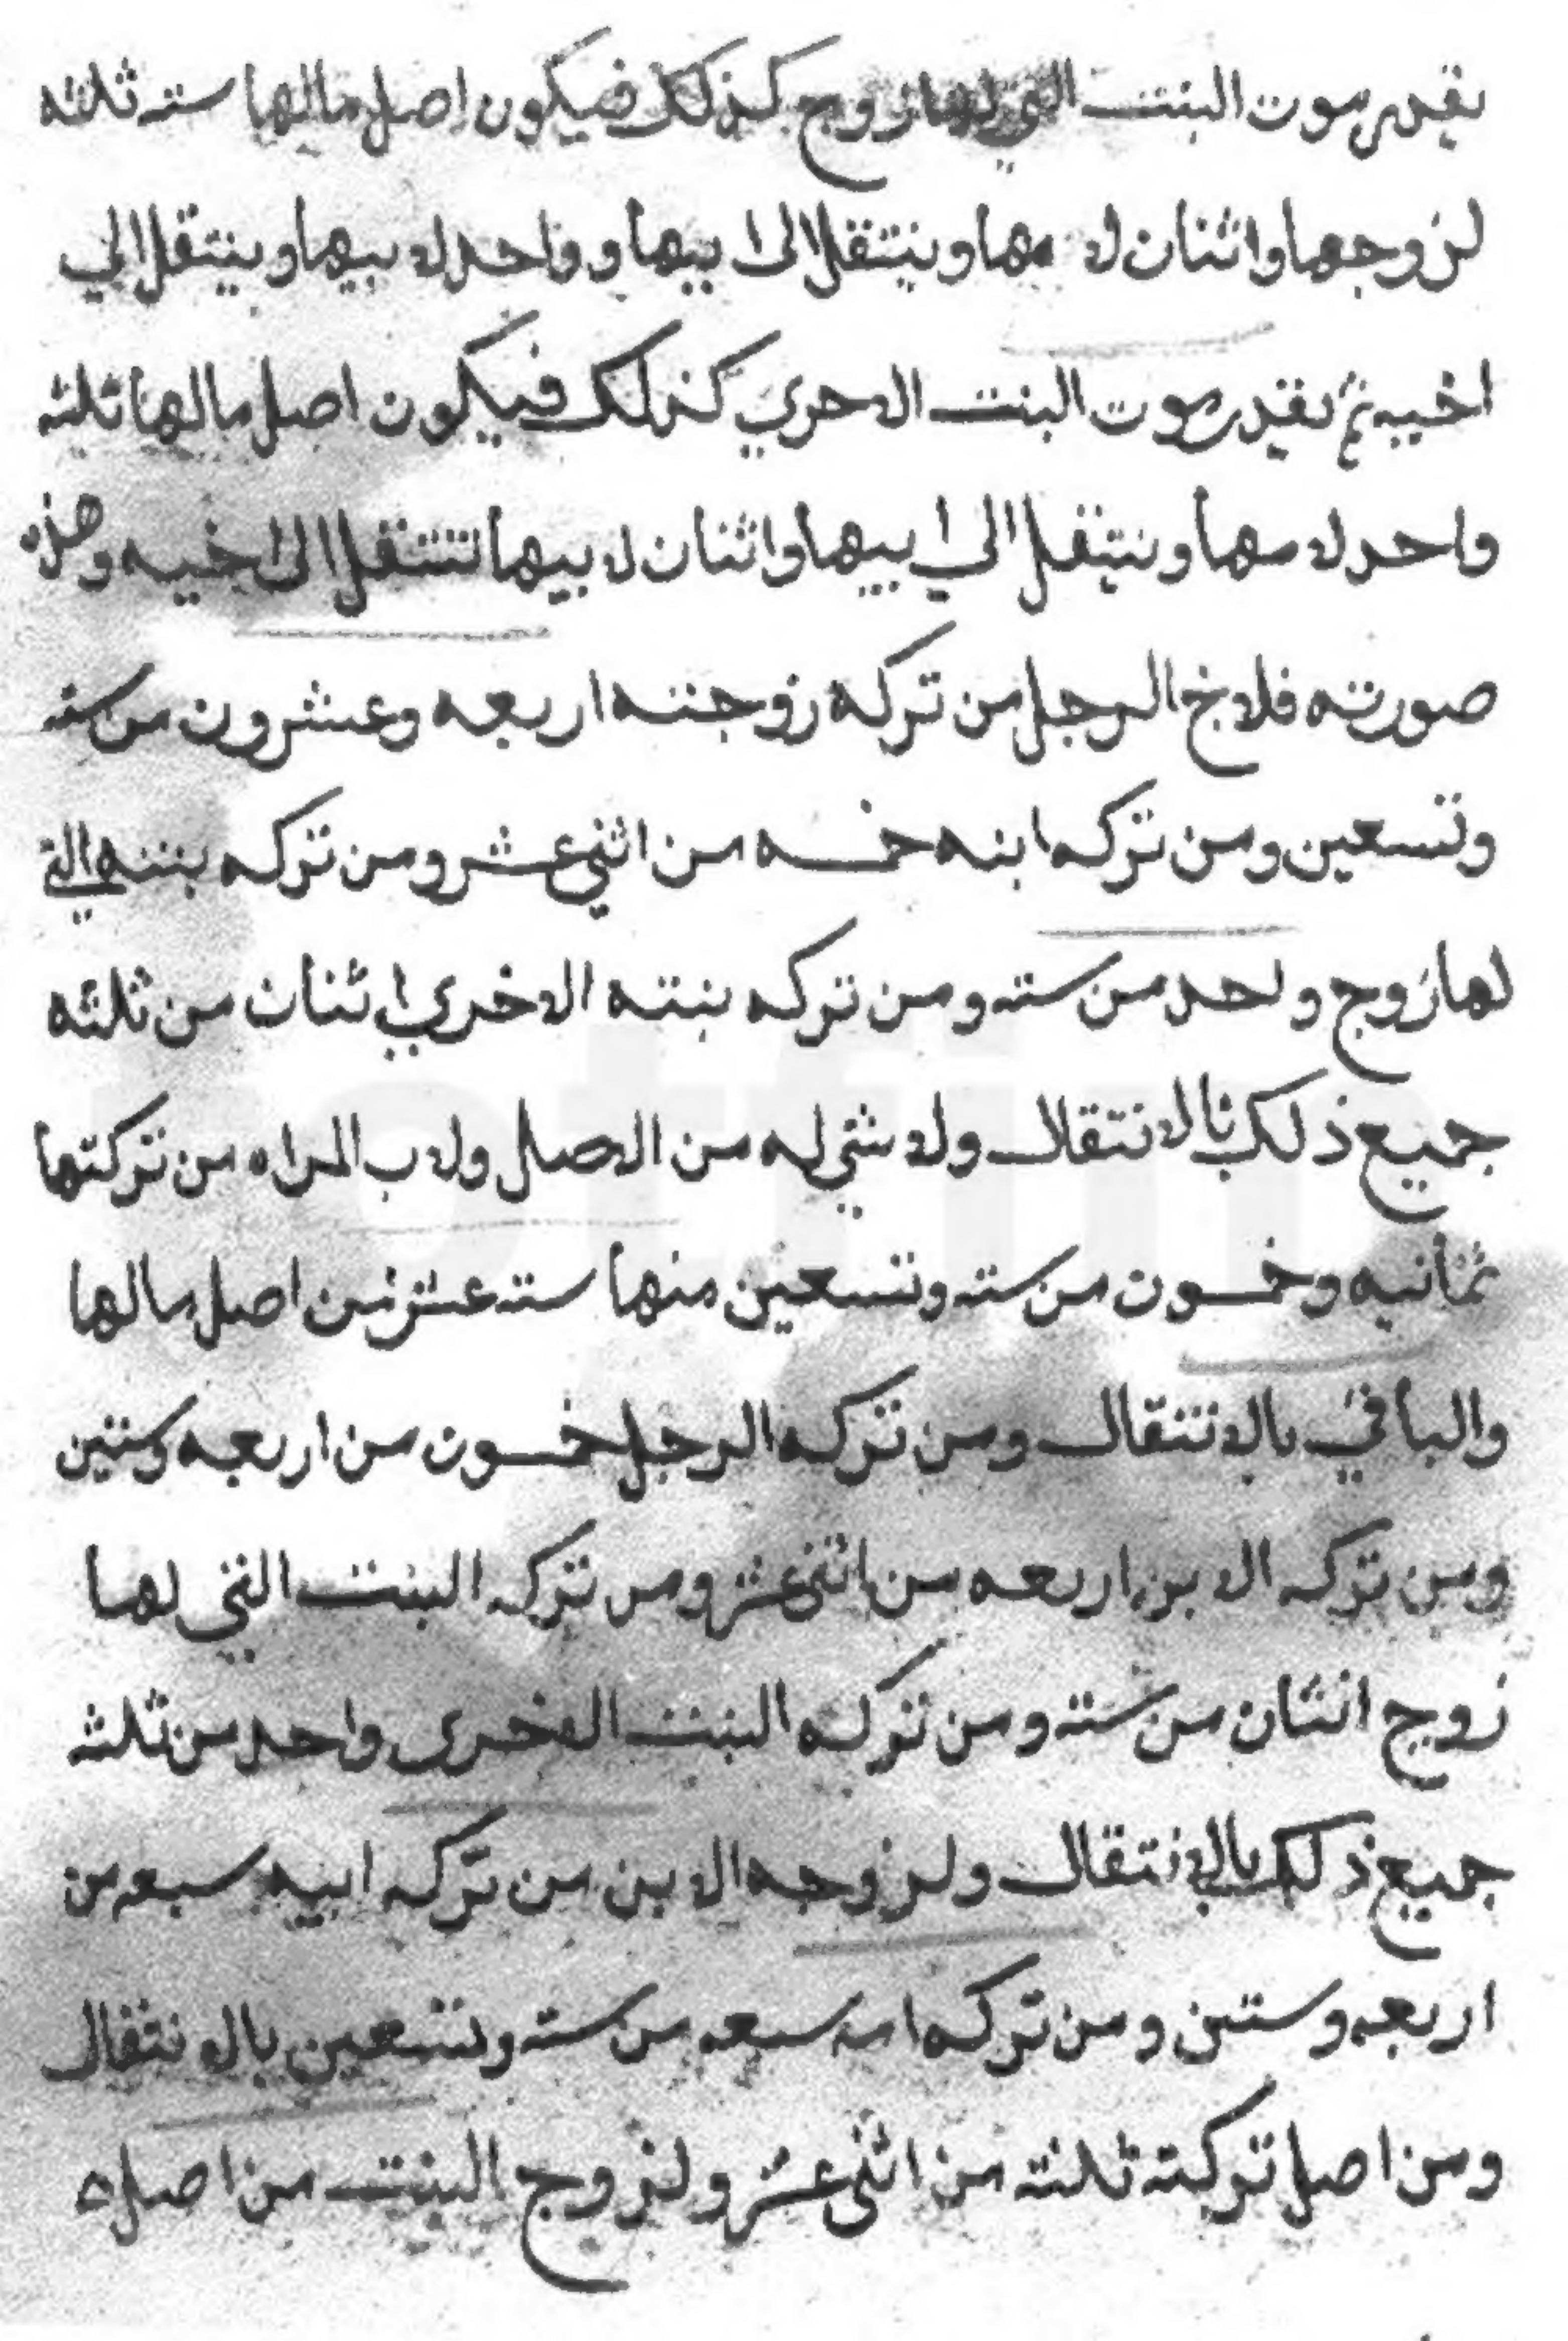 نقدر موت البنت التي لها زوج كذلك فيكون اصل مالها سته ثلثه
لزوجها واثنان لامها وينتقل الى ابيها وواحد لابيها وينتقل الي
اخيه ثم نقدر موت البنت الاحري كذلك فيكون اصل مالها ثلثه
واحد لامها وينتقل الي ابيها واثنان لابيها تنتقل الى اخيه وهذه
صورته فلاخ الرجل من تركه زوجته اربعه وعشرون من سته
وتسعين ومن تركه ابنه خمسه من اثني عشر ومن تركه بنته التي
لها زوج واحد من سته ومن تركه بنته الاخري اثنان من ثلثه
جميع ذلك بالانتقال ولا شي له من الاصل ولاب المراه من تركتها
ثمانيه وخمسون من سته وتسعين منها سته عشر من اصل مالها
والباقي بالانتقال ومن تركه الرجل خمسون من اربعه وستين
ومن تركه الابن اربعه من اثني عشر ومن تركه البنت التي لها
زوج اثنان من سته ومن تركه البنت الاخرى واحد من ثلثه
جميع ذلك بالانتقال ولزوجه الابن من تركه ابيه سبعه من
اربعه وستين ومن تركه امه سبعه من سته وتسعين بالانتقال
ومن اصل تركته ثلثه من اثنى عشر ولزوج البنت من اصل